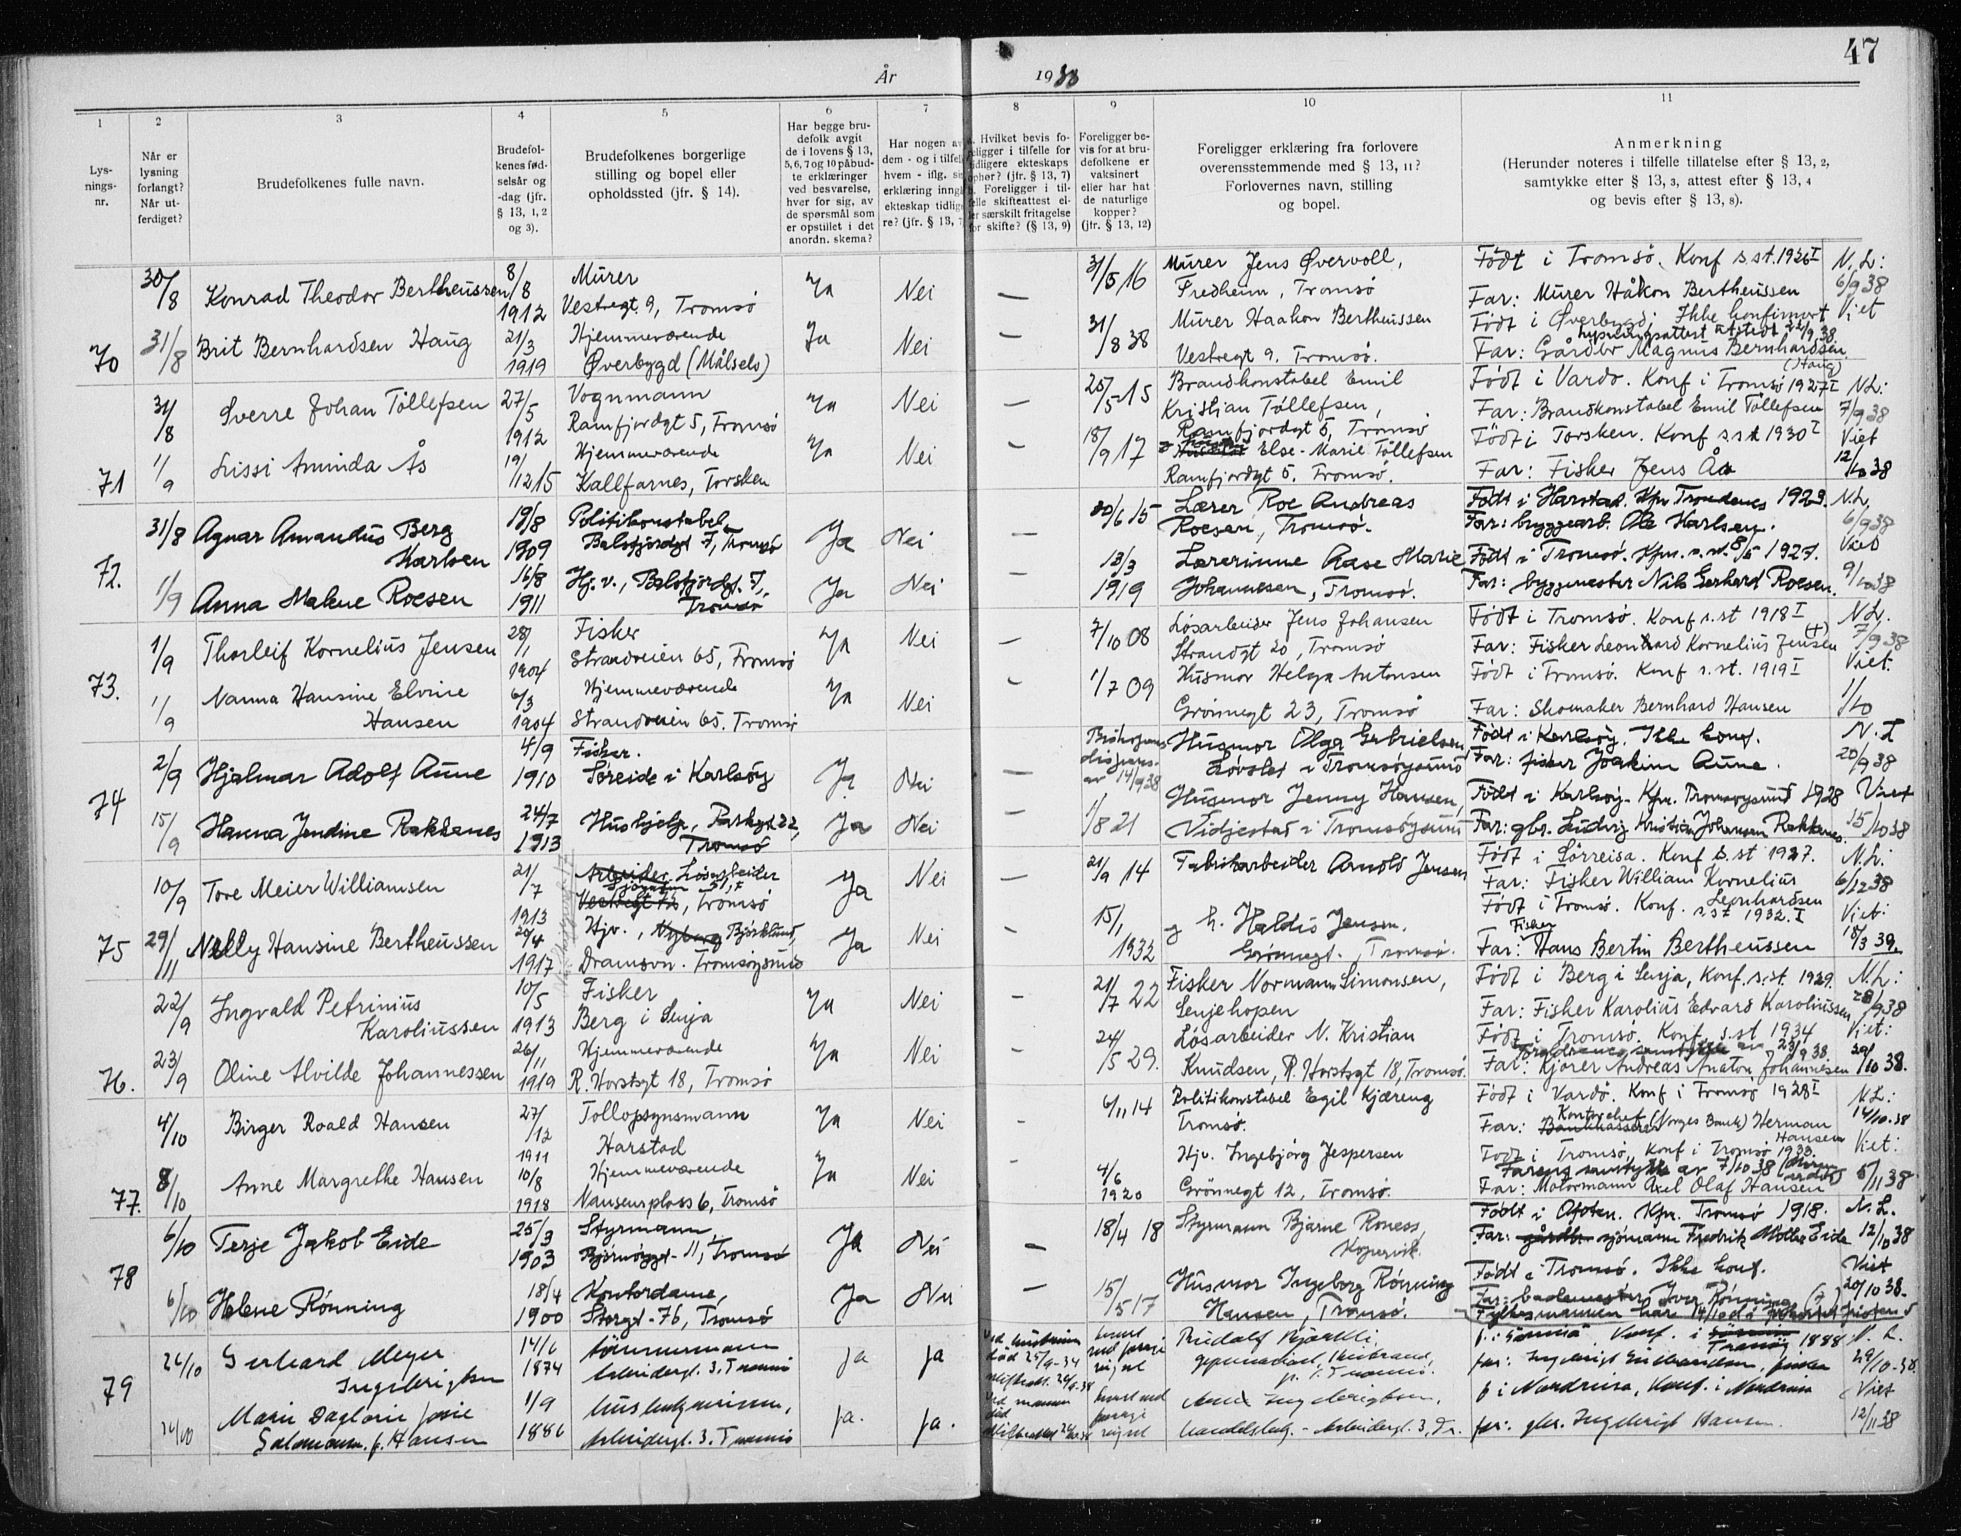 47
År 1938
1 2 3 4 5 6 7 8 9 10 11
Lys-
nings-
nr.
Når er
lysning
forlangt?
Når ut-
ferdiget?
Brudefolkenes fulle navn.
Brudefol-
kenes fød-
selsår og
-dag (jfr.
§ 13, 1, 2
og 3).
Brudefolkenes borgerlige
stilling og bopel eller
opholdssted (jfr. § 14).
Har begge bru-
defolk avgit
de i lovens § 13,
5, 6, 7 og 10 påbud-
te erklæringer
ved besvarelse,
hver for sig, av
de spørsmål som
er opstillet i det
anordn. skema?
Har nogen av
dem - og i tilfelle
hvem - iflg. sin
erklæring inngått
ekteskap tidlige-
re? (jfr. § 13, 7
Hvilket bevis fo-
religger i tilfelle for
tidligere ekteskaps
ophør? (jfr. § 13, 7)
Foreligger i til-
felle skifteattest el-
ler særskilt fritagelse
for skifte? (§ 13, 9)
Foreligger be-
vis for at bru-
defolkene er
vaksinert
eller har hat
de naturlige
kopper?
(jfr. § 13, 12)
Foreligger erklæring fra forlovere
overensstemmende med § 13, 11?
Forlovernes navn, stilling
og bopel.
Anmerkning
(Herunder noteres i tilfelle tillatelse efter § 13, 2,
samtykke efter § 13, 3, attest efter § 13, 4
og bevis efter § 13, 8).
70
30/8 Konrad Theodor Bertheussen 8/8 1912 Murer
Vestregt 9, Tromsø Ja Nei — 31/5 16 Murer Jens Øvervoll,
Fredheim, Tromsø Født i Tromsø. Konf s.st. 1926 I
Far: Murer Håkon Bertheussen N.L: 6/9 38
31/8 Brit Bernhardsen Haug 21/3 1919 Hjemmeværende
Øverbygd (Målselv) Ja Nei — 31/8 38 Murer Haakon Bertheussen
Vestregt 9. Tromsø. Født i Øverbygd; Ikke konfirmert
Far: Gårdbr Magnus Bernhardsen (Haug) Viet
71
31/8 Sverre Johan Tøllefsen 27/5 1912 Vognmann
Ramfjordgt 5, Tromsø Ja Nei — 25/5 15 Brandkonstabel Emil
Kristian Tøllefsen,
Ramfjordgt 5, Tromsø Født i Vardø. Konf i Tromsø 1927 I
Far: Brandkonstabel Emil Tøllefsen N.L: 7/9 38
1/9 Lissi Aminda Ås 19/12 15 Hjemmeværende
Kallfarnes, Torsken Ja Nei — 18/9 17 Else-Marie Tøllefsen
Ramfjordgt 5. Tromsø. Født i Torsken. Konf s.st 1930 I
Far: Fisker Jens Ås Viet 12/10 38
72.
31/8 Agnar Amandus Berg
Karlsen 19/8 1909 Politikonstabel
Balsfjordgt 7, Tromsø Ja Nei — 20/6 15 Lærer Roe Andreas
Roesen, Tromsø. Født i Harstad. Kfm Trondenes 1923.
Far: byggearb. Ole Karlsen. N.L. 6/9 38
1/9 Anna Malene Roesen 16/8 1911 Hj. v., Balsfjordgt. 7,
Tromsø Ja Nei — 13/3 1919 Lærerinne Aase Marie
Johannesen, Tromsø. Født i Tromsø. Kfm. s. st. 8/5 1927.
Far: byggmester Nils Gerhard Roesen. Viet 9/10 38
73.
1/9 Thorleif Kornelius Jensen 28/1 1904 Fisker
Strandveien 65, Tromsø Ja Nei — 7/10 08 Løsarbeider Jens Johansen
Strandgt 20, Tromsø Født i Tromsø. Konf s.st 1918 I
Far: Fisker Leonhard Kornelius Jensen (+) N.L. 7/9 38
1/9 Nanna Hansine Elvine
Hansen 6/3 1904 Hjemmeværende
Strandveien 65. Tromsø Ja Nei — 1/7 09 Husmor Helga Antonsen
Grønnegt 23, Tromsø Født i Tromsø. Konf s.st. 1919 I
Far: Skomaker Bernhard Hansen Viet. 1/10
74
2/9 Hjalmar Adolf Aune 4/9 1910 Fisker.
Søreide i Karlsøy Ja Nei — Biskopens
dispens-
av 14/9 38 Husmor Olga Gabrielsen
Løvslet i Tromsøysund Født i Karlsøy. Ikke konf.
Far: fisker Joakim Aune. N.L 20/9 38
15/9 Hanna Jendine Rakkenes 24/7 1913 Hushjelp, Parkgt 22,
Tromsø Ja Nei — 1/8 21 Husmor Jenny Hansen,
Vidjestad i Tromsøysund Født i Karlsøy. Kfm. Tromsøysund 1928
Far: gbr. Ludvig Kristian Johansen Rakkenes. Viet 15/10 38
75
10/9 Tore Meier Williamsen 21/7 1913 Arbeider Løsarbeider
Sjøgaten 31, I
Vestregt 73, Tromsø Ja Nei — 21/9 14 Fabrikarbeider Arnold Jensen Født i Sørreisa. Konf s.st 1927.
Far: Fisker William Kornelius
Leonhardsen N.L. 6/12 38
29/11 Nelly Hansine Bertheussen 20/4 1917 Hjv., Nyberg Bjørklund,
Dramsvn. Tromsøysund Ja Nei — 15/1 1932 og h. Haldis Jensen.
Grønnegt. Tromsø. Født i Tromsø. Konf. s.st 1932. I
Far: Fisker Hans Bertin Bertheussen Viet: 18/3 39.
76.
22/9 Ingvald Petrinius
Karoliussen 10/5 1913 Fisker
Berg i Senja Ja Nei — 21/7 22 Fisker Normann Simonsen,
Senjehopen Født i Berg i Senja, Konf. s.st. 1929.
Far: Fisker Karolius Edvard Karoliussen N.L: 28/9 38
23/9 Oline Alvilde Johannessen 26/11 1919 Hjemmeværende
R. Horstsgt 18, Tromsø Ja Nei — 24/5 29. Løsarbeider N. Kristian
Knudsen, R. Horstsgt 18, Tromsø. Født i Tromsø. Konf. s.st 1934
Foreldrenes samtykke av 23/9 38.
Far: Kjører Andreas Anaton Johannesen Viet: 30/10 38.
77.
4/10 Birger Roald Hansen 27/12 1911 Tollopsynsmann
Harstad Ja Nei - 6/11 14 Politikonstabel Egil Kjæreng
Tromsø. Født i Vardø. Konf i Tromsø 1928 I
Far: Bankkasserer Kontorchef (Norges Bank) Herman
Hansen N.L: 14/10-38
8/10 Anne Margrethe Hansen 10/8 1918 Hjemmeværende
Nansensplass 6, Tromsø Ja Nei - 4/6 1920 Hjv. Ingebjørg Jespersen
Grønnegt 12, Tromsø. Født i Tromsø, Konf i Tromsø 1933.
Farens samtykke av 7/10 38
Far: Motormann Axel Olaf Hansen Viet: 5/11 38
78
6/10 Terje Jakob Eide 25/3 1903 Styrmann
Bjørnøygt - 11, Tromsø Ja Nei — 18/4 18 Styrmann Bjarne Roness
Kopervik. Født i Ofoten. Kfm. Tromsø 1918.
Far: gårdbr. sjømann Fredrik Møller Eide N.L. 12/10 38
6/10 Helene Rønning 18/4 1900 Kontordame,
Storgt-76, Tromsø Ja Nei — 15/5 17 Husmor Ingeborg Rønning
Hansen, Tromsø. Født i Tromsø. Ikke konf.
Far: bademester Iver Rønning
Fylkesmannen har 14/10 Viet 20/10 38.
79
24/10 Gerhard Meyer
Ingebrigtsen 14/6 1874 tømmermann
Arbeidergt. 3. Tromsø ja ja Ved hustruens
død 25/9-34 Rudolf Bjørkli, f. i Konf. i Tranøy 1888
far: Ingebrigt fisker N.L. 29/10-38.
24/10 Marie Dagloria Josie
Salomonsen f. Hansen 1/9 1886 husbestyrerinne,
Arbeidergt. 3. Tromsø ja. ja. Ved mannens
død Ingebrigtsen,
Arbeidergt. 3, Tr. f. i Nordreisa, Konf. i Nordreisa
far: gbr. Ingebrigt Hansen. Viet 12/11 38